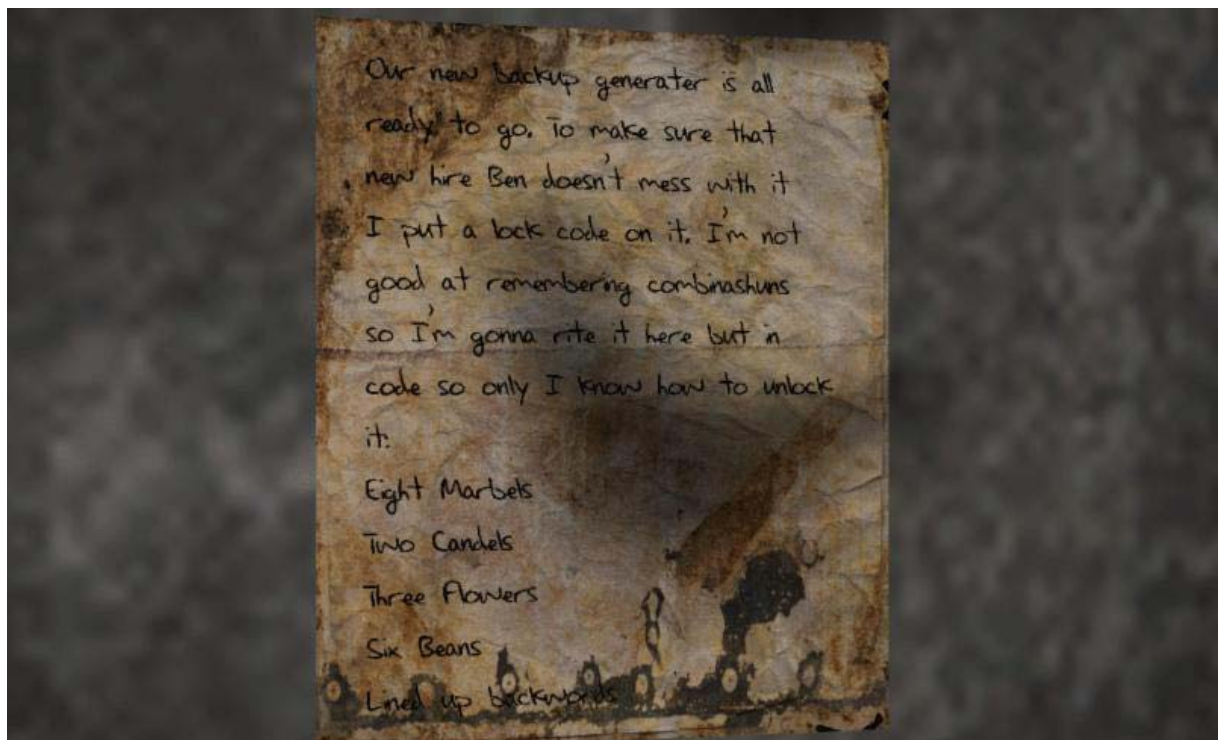 Our new backup generater is all
ready to go. To make sure that
new hire Ben doesn't mess with it
I put a lock code on it. I'm not
good at remembering combinashuns
so I'm gonna rite it here but in
code so only I know how to unlock
it:
Eight Marbels
Two Candels
Three Flowers
Six Beans
Lined up backwords